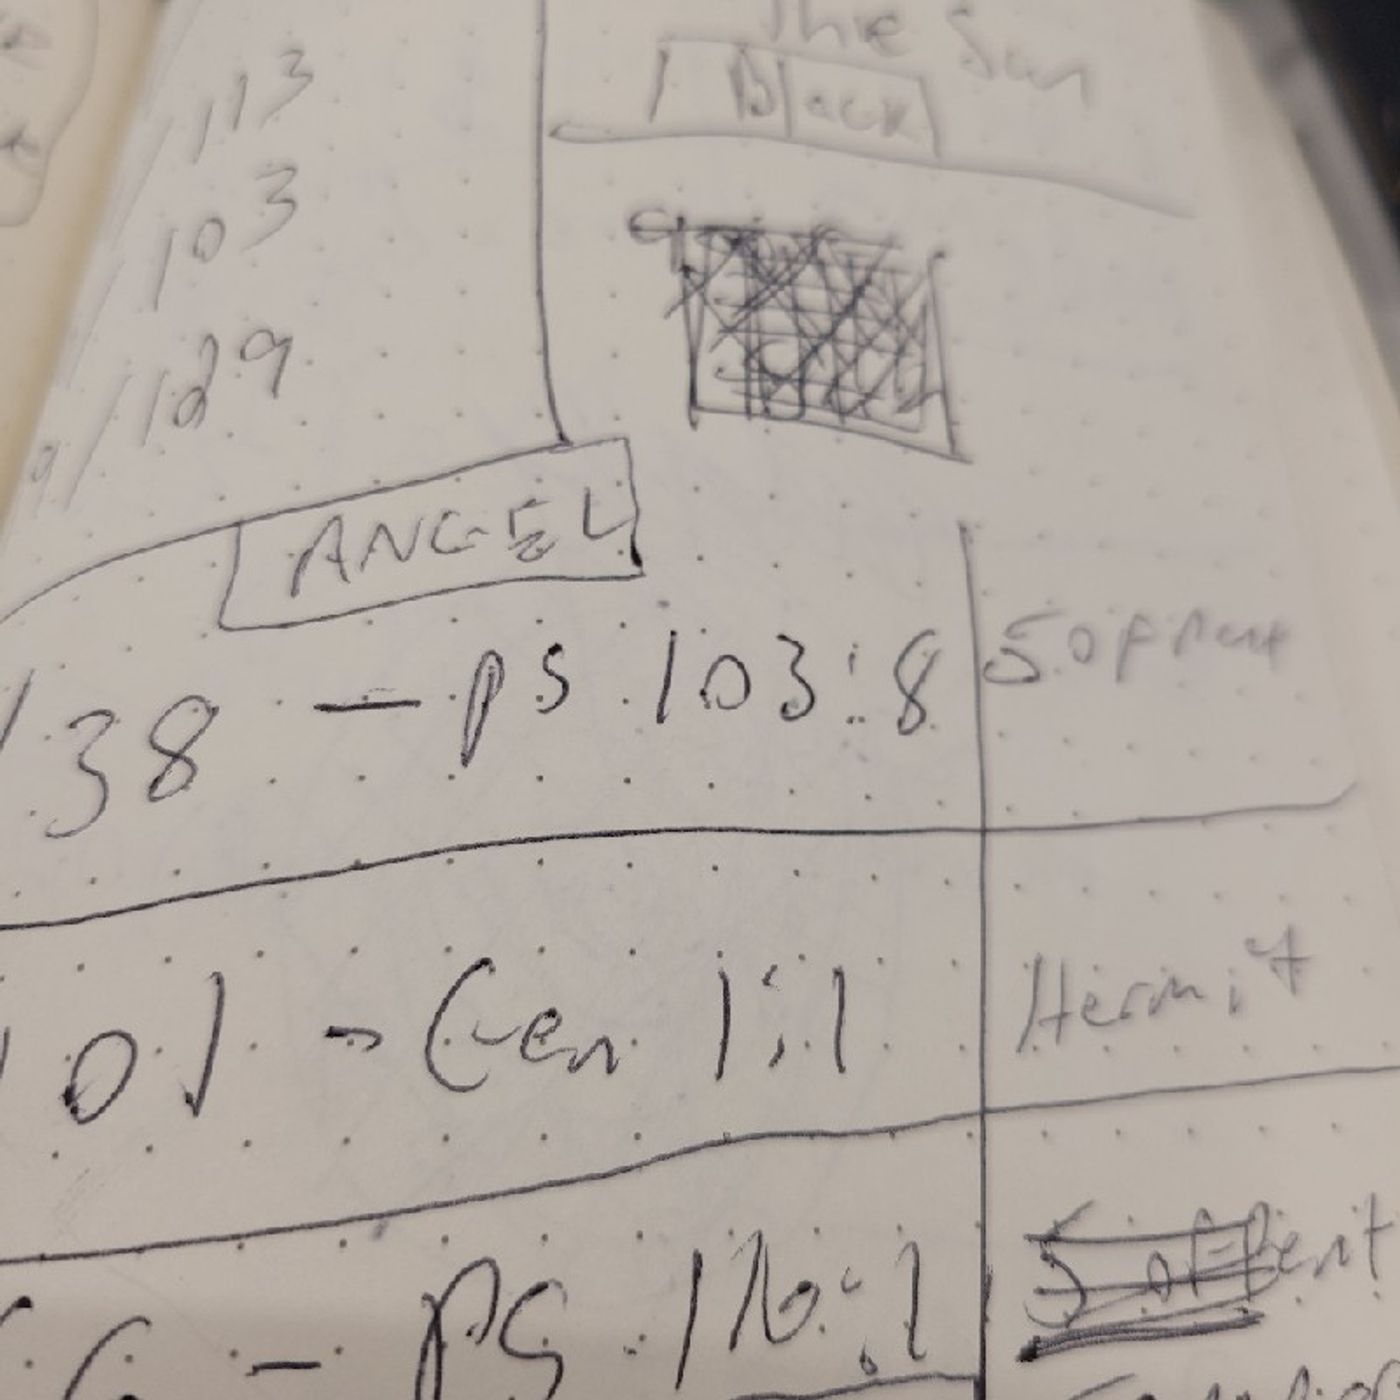 The Sun
1 Black
113
103
9/129
ANGEL
138 - PS 103:8
5 of Pent
101 - Gen 1:1
Hermit
- PS 116:1